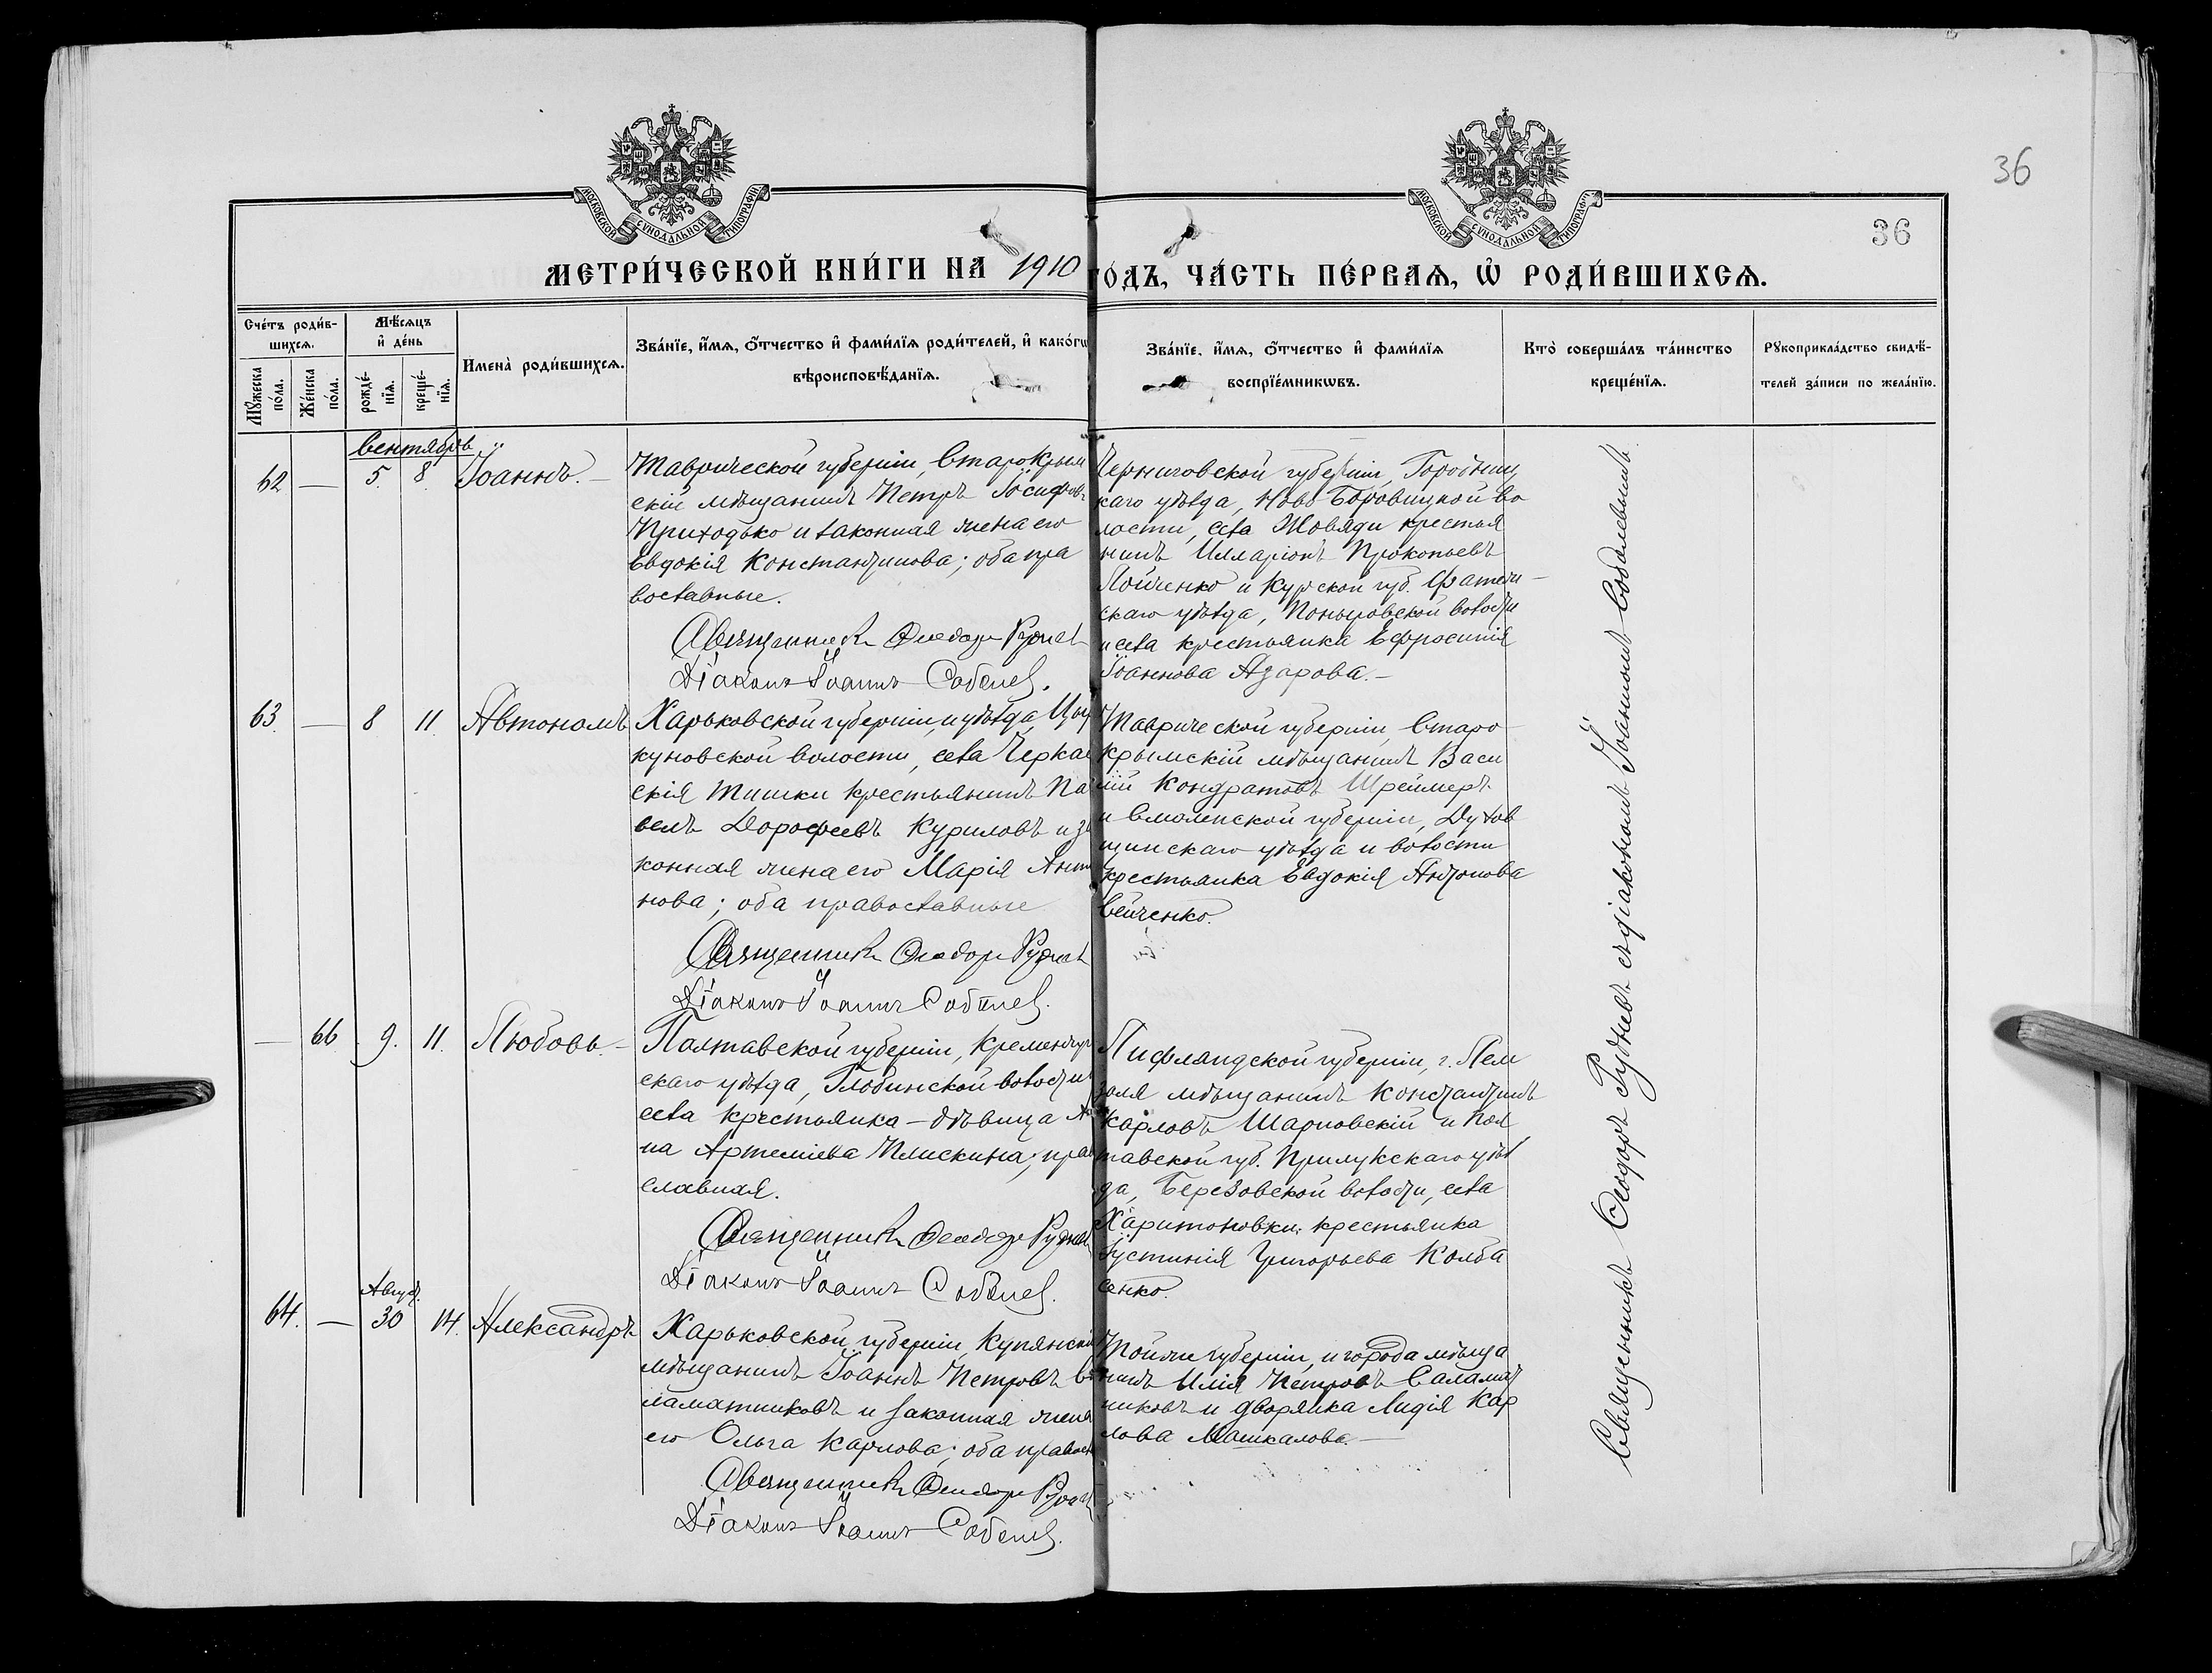 36
36
МОСКОВСКОЙ СѴНОДАЛЬНОЙ ТИПОГРАФІИ
МОСКОВСКОЙ СѴНОДАЛЬНОЙ ТИПОГРАФІИ
МЕТРИ́ЧЕСКОЙ КНИ́ГИ НА 1910 ГО́ДЪ, ЧА́СТЬ ПЕ́РВАѦ, Ѡ҆ РОДИ́ВШИХСѦ.
Сче́тъ роди́в-
шихсѧ.
Мꙋ́жеска
по́ла.
Же́нска
по́ла.
Мѣ́сѧцъ
и҆ де́нь
рожде́-
нїѧ.
креще́-
нїѧ.
Имена̀ роди́вшихсѧ.
Зва́нїе, и҆́мѧ, ѻ҆́тчество и҆ фами́лїѧ роди́телей, и҆ како́гѡ
вѣроисповѣ́данїѧ.
Зва́нїе, и҆́мѧ, ѻ҆́тчество и҆ фами́лїѧ
воспрїе́мникѡвъ.
Кто̀ соверша́лъ та́инство
креще́нїѧ.
Рꙋкоприкла́дство свидѣ́-
телей за́писи по жела́нїю.
Сентябрь
62 — 5. 8. Іоаннъ. —
Таврической губерніи, Старокрым
скій мѣщанинъ Петръ Іосифовъ
Приходько и законная жена его
Евдокія Константинова; оба пра
вославные.
Священникъ Ѳеодоръ Руднев
Діаконъ Іоаннъ Соболев.
Черниговской губерніи, Городниц
каго уѣзда, Ново-Боровицкой во
лости, села Жовяди крестья
нинъ Илларіонъ Прокопьевъ
Лойченко и Курской губ. Фатеж-
скаго уѣзда, Поныровской волости
и села крестьянка Ефросинія
Іоаннова Азарова. —
63. — 8 11. Автономъ
Харьковской губерніи, и уѣзда, Цыр
куновской волости, села Черкас
скія Тишки крестьянинъ Па
велъ Дорофеевъ Куриловъ и за
конная жена его Марія Анто
нова; оба православные
Священникъ Ѳеодоръ Руднев
Діаконъ Іоаннъ Соболев.
Таврической губерніи, Старо
крымскій мѣщанинъ Васи
лій Кондратовъ Шреймеръ
и Смоленской губерніи, Духов
щинскаго уѣзда и волости
крестьянка Евдокія Антонова
Сейченко.
— 66 9. 11. Любовь. —
Полтавской губерніи, Кременчуг
скаго уѣзда, Глобинской волости
села крестьянка - дѣвица Ан
на Артеміева Плискина; право
славная.
Священникъ Ѳеодоръ Руднев
Діаконъ Іоаннъ Соболев.
Лифляндской губерніи, г. Лем
золя мѣщанинъ Константинъ
Карловъ Шарновскій и Пол
тавской губ. Прилукскаго уѣз
да, Березовской волости, села
Харитоновки, крестьянка
Іустинія Григорьева Колба
сенко.
Август.
64. — 30 14. Александръ
Харьковской губерніи, Купянскій
мѣщанинъ Іоаннъ Петровъ Са
ламатниковъ и законная жена
его Ольга Карлова; оба правосл
Священникъ Ѳеодоръ Руднев
Діаконъ Іоаннъ Соболев.
Той же губерніи, и города мѣща
нинъ Илія Петровъ Саламат
никовъ и дворянка Лидія Кар
лова Машкалова. —
Священникъ Ѳеодоръ Рудневъ съ діакономъ Іоанномъ Соболевымъ